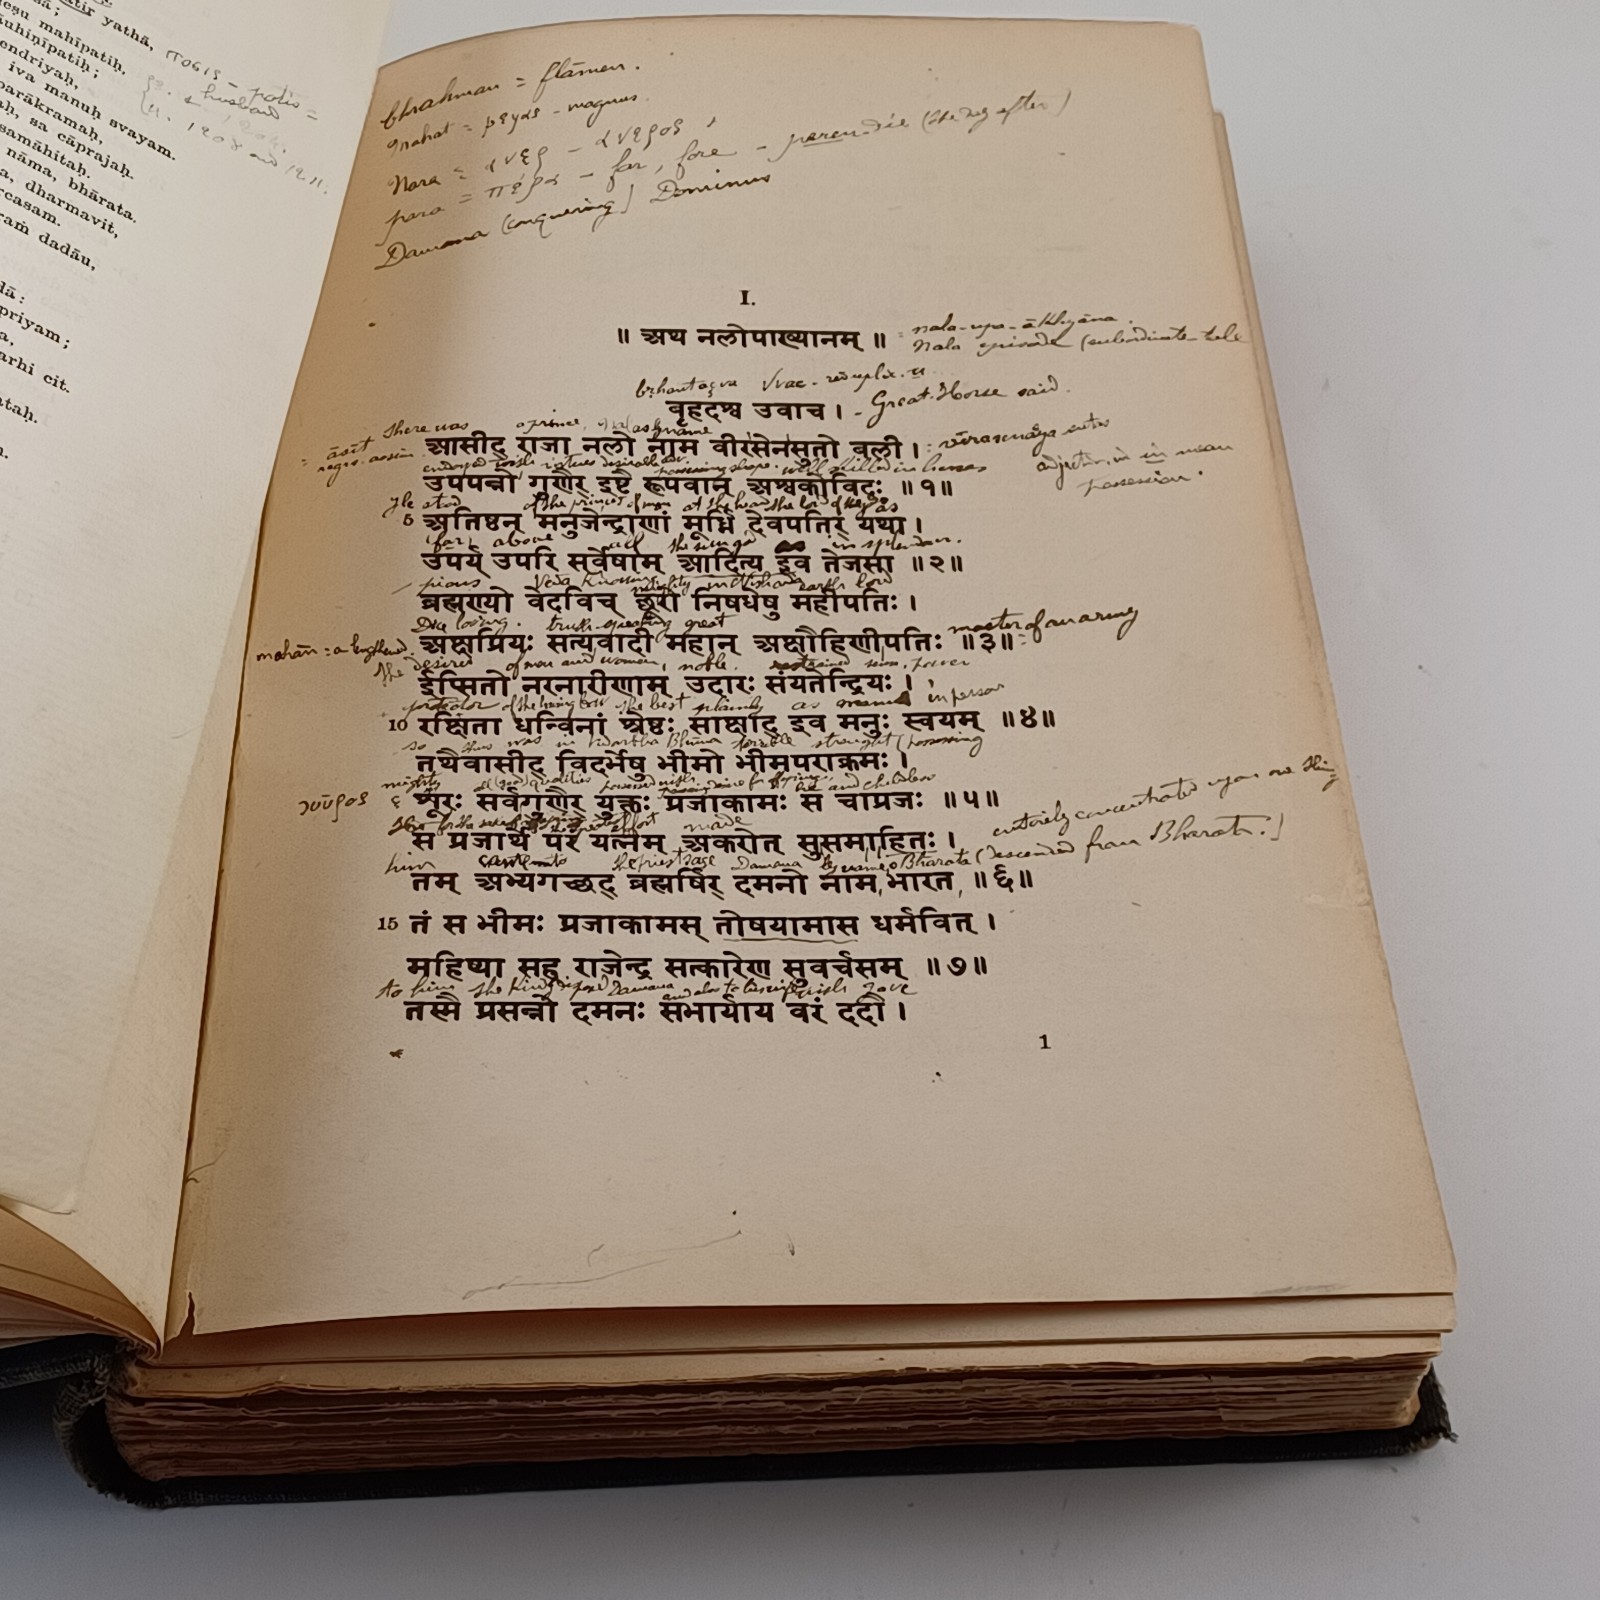 yathā,
mahīpatiḥ,
ndriyaḥ,
iva manuḥ svayam.
parākramaḥ,
sa cāprajaḥ.
samāhitaḥ.
nāma, bhārata.
dharmavit,
casam.
dadāu,
priyam;
arhi cit.
ποσις - potis =
husband
1208 and 1211.
brahman = flāmen.
mahat = μεγας - magnus.
Nara = ανερ - ανερος,
para = πέρα - far, fore - peren-die (the day after)
Damana (conquering) Dominus
I.
॥ अथ नलोपाख्यानम् ॥
nala-upa-ākhyāna.
Nala episode (subordinate tale
bṛhantaçva √vac - reduplic. u
बृहदश्व उवाच ।
- Great-Horse said.
there was a prince, Nala as by name
= āsīt
आसीद् राजा नलो नाम वीरसेनसुतो बली ।
endowed with virtues desirable possessing shape. well skilled in horses
adjective in in mean
possession.
उपपन्नो गुणैर् इष्टै रूपवान् अश्वकोविदः ॥१॥
He stood of the princes of men at the head the lord of the gods
5 अतिष्ठन् मनुजेन्द्राणां मूर्ध्नि देवपतिर् यथा ।
(far) above all the sun in splendor.
उपर्य् उपरि सर्वेषाम् आदित्य इव तेजसा ॥२॥
pious Veda Knowing mighty in Nishada earth lord
ब्रह्मण्यो वेदविच् छूरो निषधेषु महीपतिः ।
Dice loving. truth-speaking great
mahān : a lengthened.
अक्षप्रियः सत्यवादी महान् अक्षौहिणीपतिः ॥३॥
master of an army
the desired of men and women, noble. restrained sense power
ईप्सितो नरनारीणाम् उदारः संयतेन्द्रियः ।
protector of the having bow the best plainly as manus in person
10 रक्षिता धन्विनां श्रेष्ठः साक्षाद् इव मनुः स्वयम् ॥४॥
so thus was in Vidarbha Bhima terrible strength (possessing
तथैवासीद् विदर्भेषु भीमो भीमपराक्रमः ।
mighty all (good) qualities possessed with desire for offspring, he and childless
शूरः सर्वगुणैर् युक्तः प्रजाकामः स चाप्रजः ॥५॥
made
entirely concentrated upon one thing
स प्रजार्थे परं यत्नम् अकरोत् सुसमाहितः ।
him came unto the priest sage Damana by name, o Bharata (descended from Bharata!)
तम् अभ्यगच्छद् ब्रह्मर्षिर् दमनो नाम, भारत, ॥६॥
15 तं स भीमः प्रजाकामस् तोषयामास धर्मवित् ।
महिष्या सह राजेन्द्र सत्कारेण सुवर्चसम् ॥७॥
to him the kindly disposed Damana and also to his wife wish gave
तस्मै प्रसन्नो दमनः सभार्याय वरं ददौ ।
1